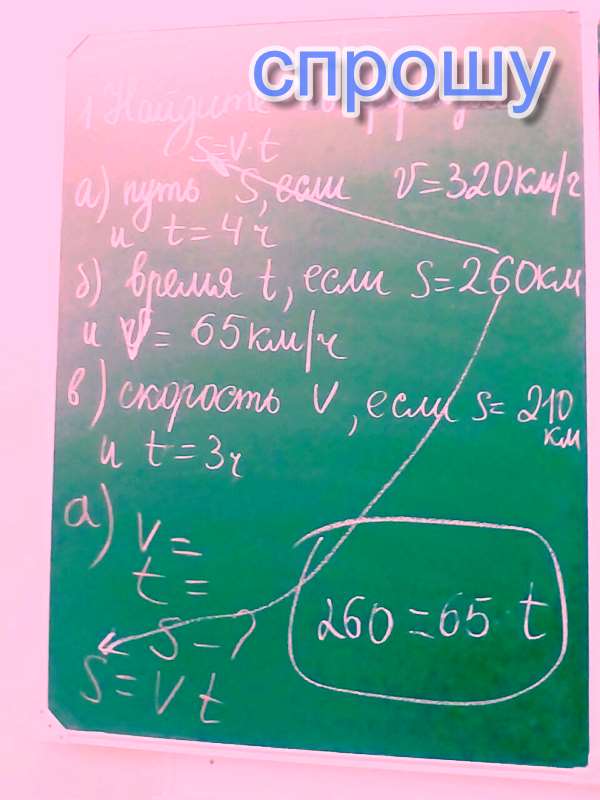 спрошу
1 Найдите
S=v·t
а) путь S, если v=320км/ч
и t=4ч
б) время t, если S=260км
и V=65км/ч
в) скорость V, если s=210
км
и t=3ч
а) V=
t=
S-?
S=Vt
260=65 t